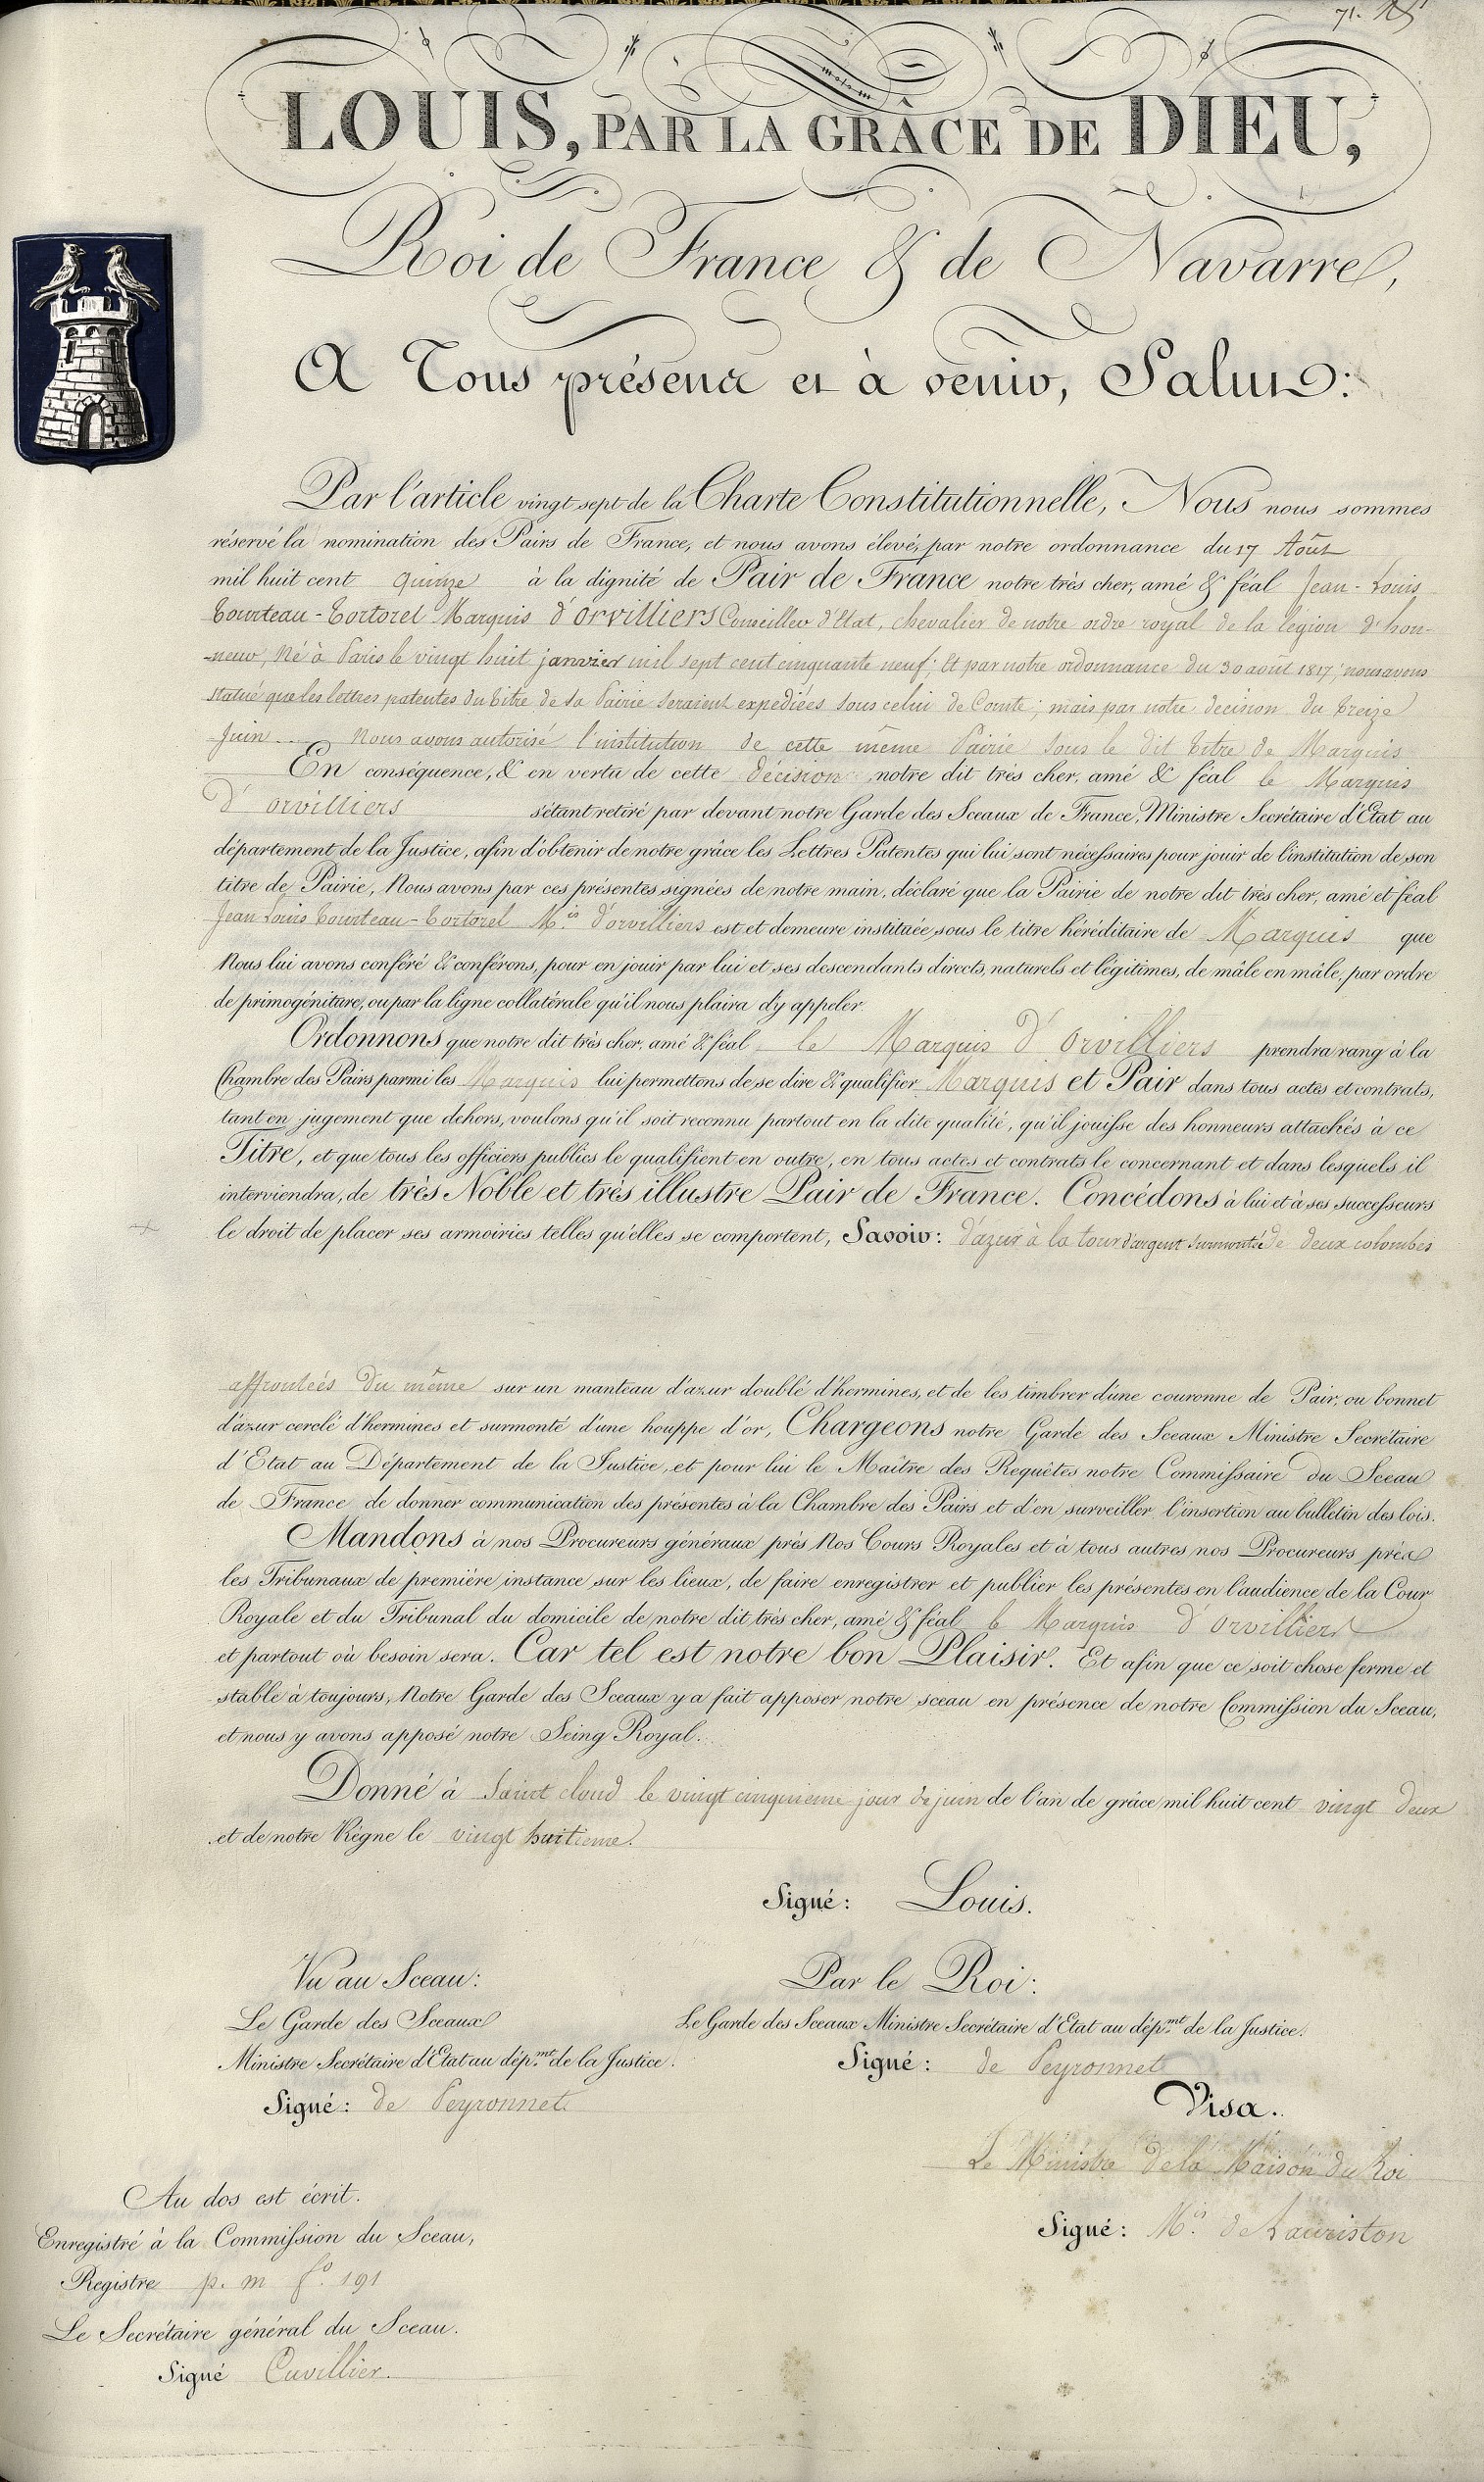 71.
LOUIS, PAR LA GRÂCE DE DIEU,
Roi de France & de Navarre,
A Tous présens et à venir, Salut:
Par l'article vingt sept de la Charte Constitutionnelle, Nous nous sommes
réservé la nomination des Pairs de France, et nous avons élevé, par notre ordonnance du 17 Août
mil huit cent quinze à la dignité de Pair de France notre très cher, amé & féal Jean-Louis
Tourteau-Tortorel Marquis d'orvilliers Conseiller d'Etat, chevalier de notre ordre royal de la légion d'hon-
-neur, Né à Paris le vingt huit janvier mil sept cent cinquante neuf; Et par notre ordonnance du 30 août 1817, nous avons
statué que les lettres patentes du titre de sa Pairie seraient expediées sous celui de Comte; mais par notre decision du treize
Juin Nous avons autorisé l'institution de cette même Pairie sous le dit titre de Marquis
En conséquence, & en vertu de cette décision notre dit très cher, amé & féal le Marquis
d'orvilliers s'étant retiré par devant notre Garde des Sceaux de France, Ministre Secrétaire d'Etat au
département de la Justice, afin d'obtenir de notre grâce les Lettres Patentes qui lui sont nécessaires pour jouir de l'institution de son
titre de Pairie, Nous avons par ces présentes signées de notre main, déclaré que la Pairie de notre dit très cher, amé et féal
Jean Louis Tourteau-Tortorel M.is d'orvilliers est et demeure instituée sous le titre héréditaire de Marquis que
Nous lui avons conféré & conférons, pour en jouir par lui et ses descendants directs, naturels et légitimes, de mâle en mâle, par ordre
de primogéniture, ou par la ligne collatérale qu'il nous plaira d'y appeler.
Ordonnons que notre dit très cher, amé & féal le Marquis d'Orvilliers prendra rang à la
Chambre des Pairs parmi les Marquis lui permettons de se dire & qualifier Marquis et Pair dans tous actes et contrats,
tant en jugement que dehors, voulons qu'il soit reconnu partout en la dite qualité, qu'il jouisse des honneurs attachés à ce
Titre, et que tous les officiers publics le qualifient en outre, en tous actes et contrats le concernant et dans lesquels il
interviendra, de très Noble et très illustre Pair de France. Concédons à lui et à ses successeurs
le droit de placer ses armoiries telles qu'elles se comportent, Savoir: d'azur à la tour d'argent surmontée de deux colombes
affrontées du même sur un manteau d'azur doublé d'hermines, et de les timbrer d'une couronne de Pair, ou bonnet
d'azur cerclé d'hermines et surmonté d'une houppe d'or, Chargeons notre Garde des Sceaux Ministre Secrétaire
d'Etat au Département de la Justice, et pour lui le Maître des Requêtes notre Commissaire du Sceau
de France de donner communication des présentes à la Chambre des Pairs et d'en surveiller l'insertion au bulletin des lois.
Mandons à nos Procureurs généraux près Nos Cours Royales et à tous autres nos Procureurs près
les Tribunaux de première instance sur les lieux, de faire enregistrer et publier les présentes en l'audience de la Cour
Royale et du Tribunal du domicile de notre dit très cher, amé & féal le Marquis d'Orvilliers
et partout où besoin sera. Car tel est notre bon Plaisir. Et afin que ce soit chose ferme et
stable à toujours, Notre Garde des Sceaux y a fait apposer notre sceau en présence de notre Commission du Sceau,
et nous y avons apposé notre Seing Royal.
Donné à Saint cloud le vingt cinquieme jour de juin de l'an de grâce mil huit cent vingt deux
et de notre Règne le vingt huitieme.
Signé: Louis.
Vu au Sceau:
Le Garde des Sceaux
Ministre Secrétaire d'Etat au dép.mt de la Justice.
Signé: de Peyronnet
Par le Roi:
Le Garde des Sceaux Ministre Secrétaire d'Etat au dép.mt de la Justice.
Signé: de Peyronnet
Visa.
Le Ministre de la Maison du Roi
Signé: M.is de Lauriston
Au dos est écrit.
Enregistré à la Commission du Sceau,
Registre p. m f.o 191
Le Secrétaire général du Sceau.
Signé Cuvillier.